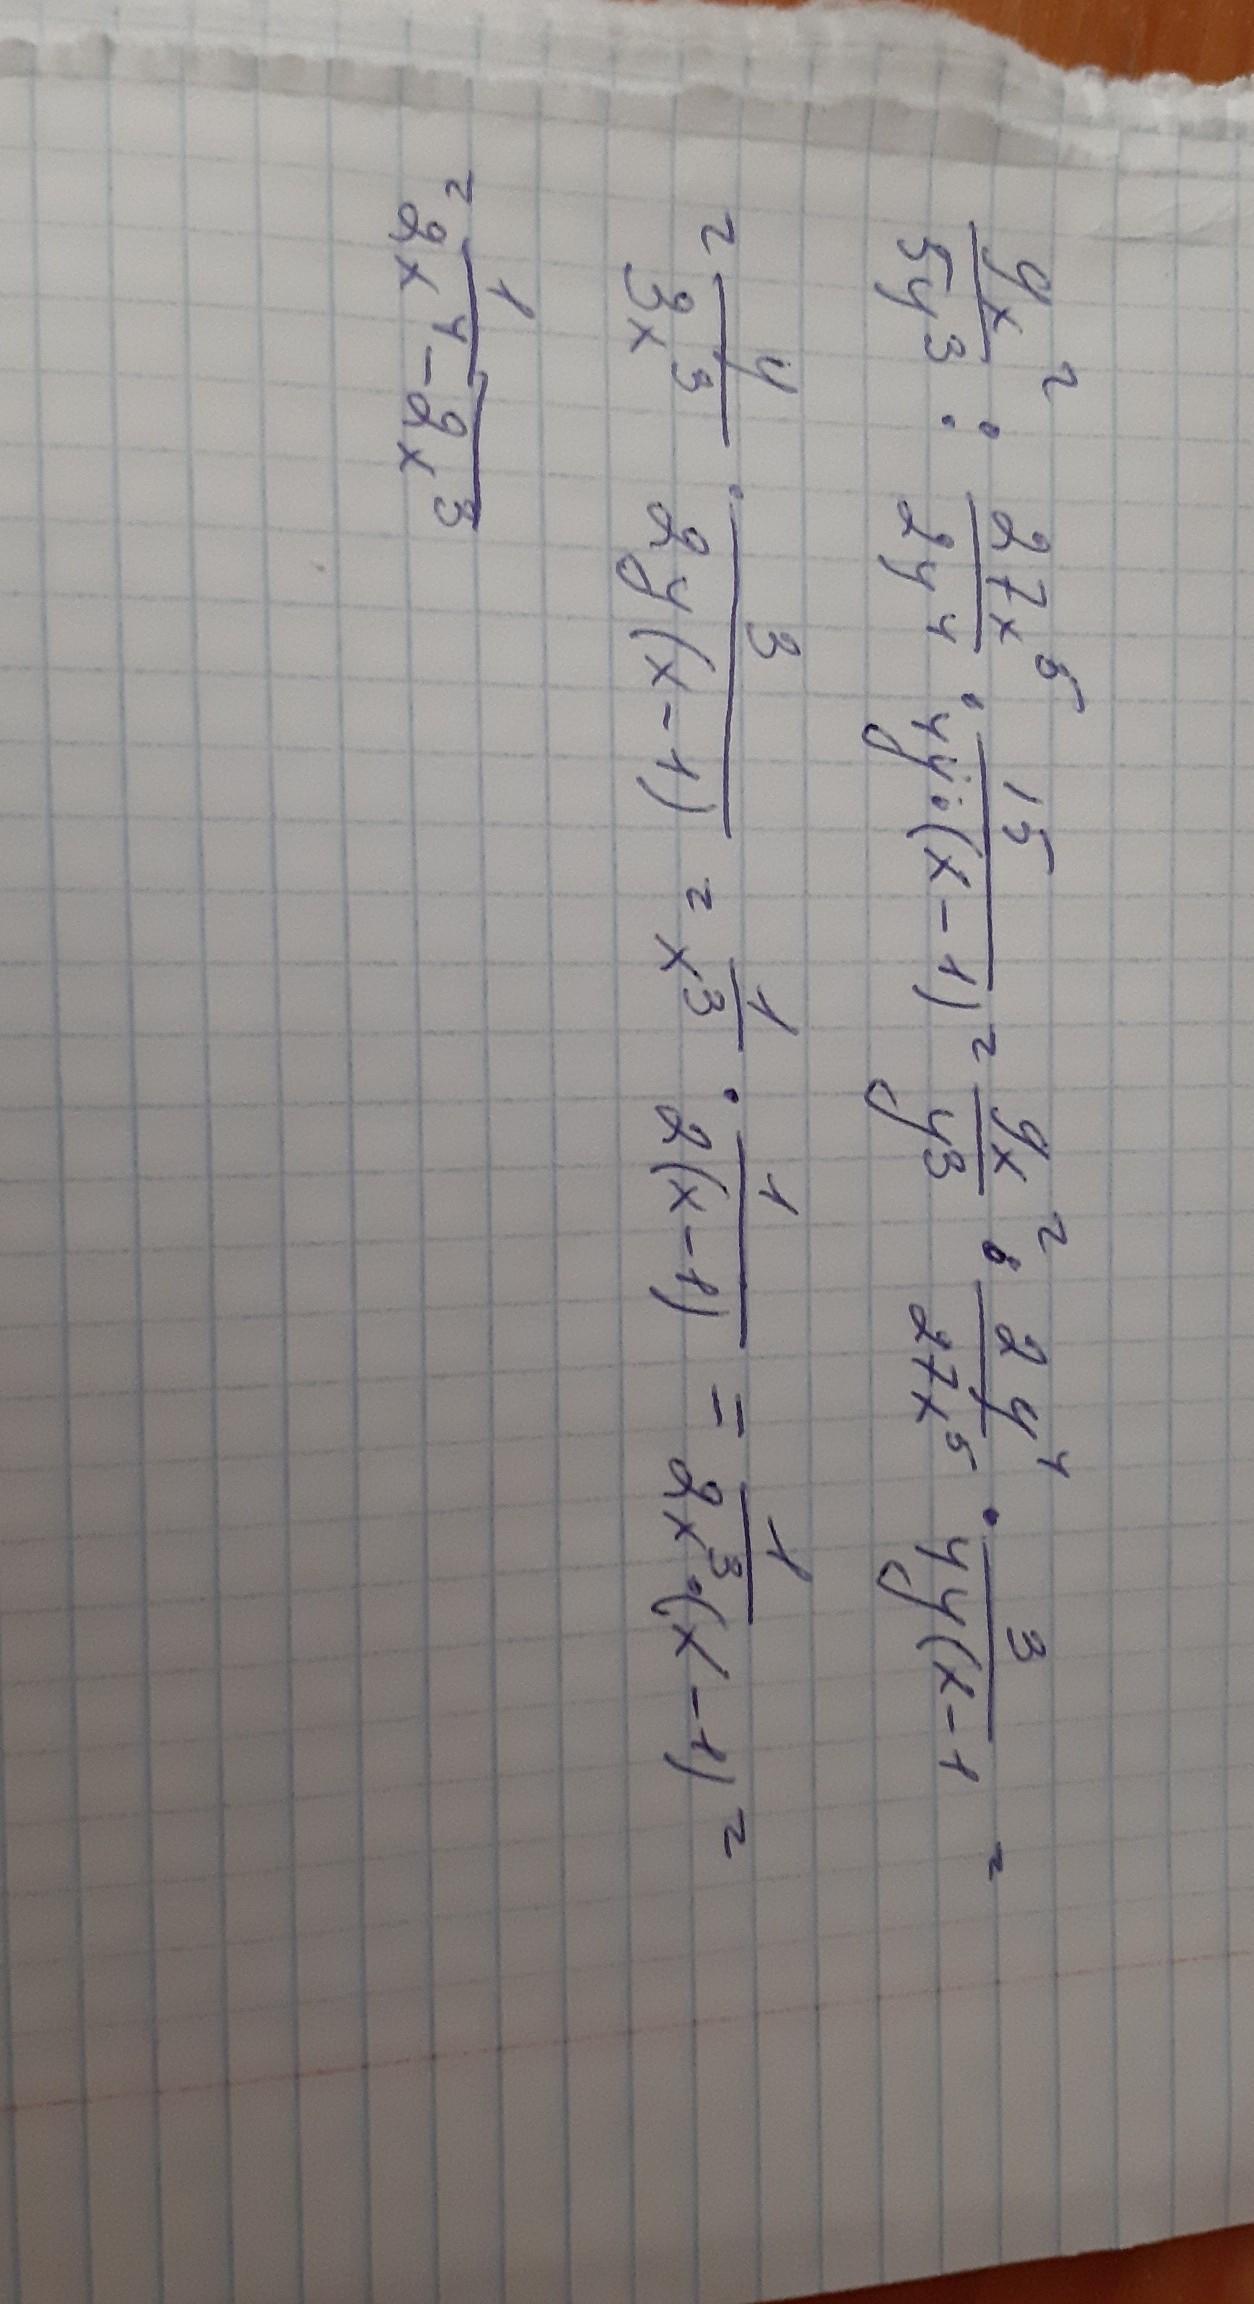 9x² / 5y³ : 27x⁵ / 2y⁴ · 15 / 4y·(x-1) = 9x² / y³ · 2y⁴ / 27x⁵ · 3 / 4y(x-1 =
= y / 3x³ · 3 / 2y(x-1) = 1 / x³ · 1 / 2(x-1) = 1 / 2x³·(x-1) =
= 1 / 2x⁴-2x³